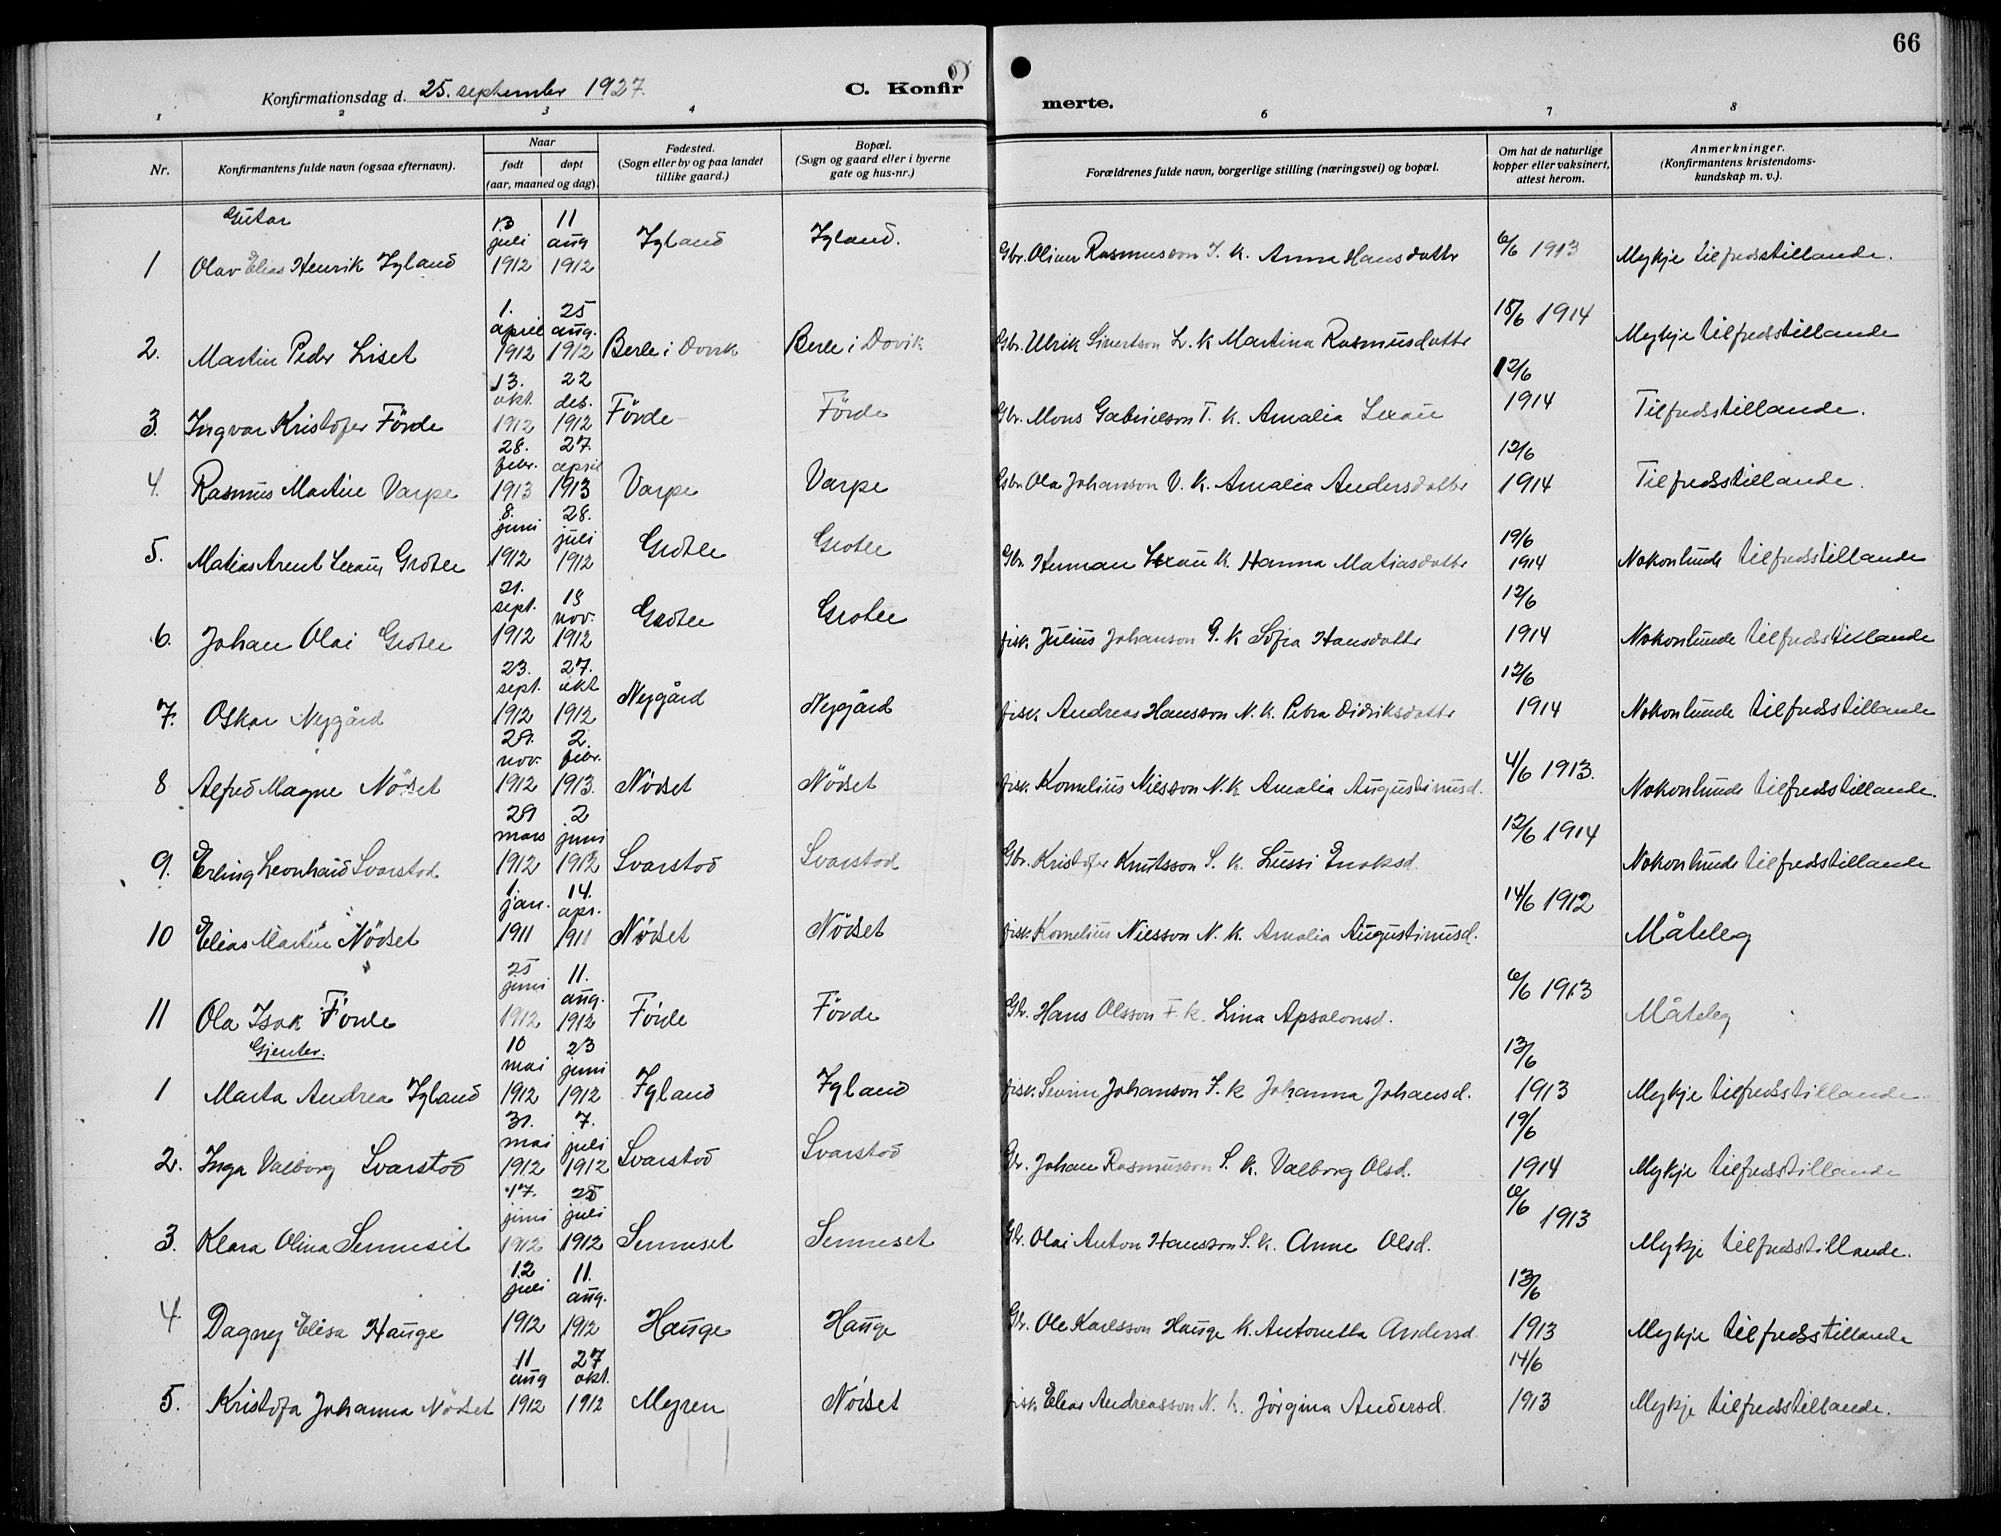 66
Konfirmationsdag d. 25. september 1927.
C. Konfir
merte.
1 2 3 4 6 7 8
Nr.
Konfirmantens fulde navn (ogsaa efternavn).
Naar
født døpt
(aar, maaned og dag).
Fødested.
(Sogn eller by og paa landet
tillike gaard.)
Bopæl.
(Sogn og gaard eller i byerne
gate og hus-nr.)
Forældrenes fulde navn, borgerlige stilling (næringsvei) og bopæl.
Om hat de naturlige
kopper eller vaksinert,
attest herom.
Anmerkninger.
(Konfirmantens kristendoms-
kundskap m. v.).
Gutar
1 Olav Elias Henrik Igland 13 juli 1912 11 aug 1912 Igland Igland. Gbr. Oliver Rasmusson I. k. Anna Hansdotter 6/6 1913 Mykje tilfredsstillande.
2. Martin Peder Liset 1. april 1912 25 aug. 1912 Berle i Dovik Berle i Dovik Gbr. Ulrik Sivertson L. k Martina Rasmusdotter 18/6 1914 Mykje tilfredsstillande
3. Ingvar Kristofer Förde 13. okt. 1912 22 des. 1912 Förde Förde Gbr. Mons Gabrielson F. k. Amalia Lexau 12/6 1914 Tilfredsstillande.
4. Rasmus Martin Varpe 28. febr. 1913 27. april 1913 Varpe Varpe Gbr. Ola Johanson V. k. Amalia Andersdotter 12/6 1914 Tilfredsstillande.
5. Matias Arent Lexau Grotle 8. juni 1912 28. juli 1912 Grotle Grotle Gbr. Herman Lexau k. Hanna Matiasdotter 19/6 1914 Nokonlunde tilfredsstillande
6. Johan Olai Grotle 21. sept. 1912 18 nov. 1912 Grotle Grotle fisk. Julius Johanson G. k Sofia Hansdotter 12/6 1914 Nokonlunde tilfredsstillande
7. Oskar Nygård 23. sept. 1912 27. okt 1912 Nygård Nygård fisk. Andreas Hansson N. k. Petra Didriksdotter 12/6 1914 Nokonlunde tilfredsstillande
8 Alfred Magne Nödset 29. nov. 1912 2. febr. 1913. Nödset Nödset fisk. Kornelius Nilsson N. k Amalia Augustinusd. 4/6 1913. Nokonlunde tilfredsstillande.
9. Erling Leonhard Svarstad 29 mars 1912 2 juni 1912 Svarstad Svarstad Gbr. Kristofer Knutsson S. k. Lussi Enoksd. 12/6 1914 Nokonlunde tilfredsstillande
10 Elias Martin Nödset 1. jan. 1911 14. apr. 1911 Nödset Nödset fisk. Kornelius Nilsson N. k. Amalia Augustinusd. 14/6 1912 Måteleg
11 Ola Isak Förde 25 juni 1912 11. aug. 1912 Förde Förde Gbr. Hans Olsson F. k. Lina Apsalonsd. 6/6 1913 Måteleg
Gjenter.
1 Marta Andrea Igland 10 mai 1912 23 juni 1912 Igland Igland fisk. Severin Johanson I. k Johanna Johansd. 13/6 1913 Mykje tilfredsstillande.
2. Inga Valborg Svarstad 31. mai 1912 7. juli 1912 Svarstad Svarstad Gbr. Johan Rasmusson S. k. Valborg Olsd. 19/6 1914 Mykje tilfredsstillande
3. Klara Olina Senneset 17. juni 1912 28 juli 1912 Senneset Senneset Gbr. Olai Anton Hansson S. k. Anne Olsd. 6/6 1913 Mykje tilfredsstillande.
4 Dagny Elisa Hauge 12 juli 1912 11. aug. 1912 Hauge Hauge Gbr. Ole Karlsson Hauge k. Antonetta Andersd. 13/6 1913 Mykje tilfredsstillande
5. Kristofa Johanna Nödset 11 aug 1912 27 okt. 1912 Myren Nödset fisk. Elias Andreasson N. k. Jörgina Andersd. 14/6 1913 Mykje tilfredsstillande.